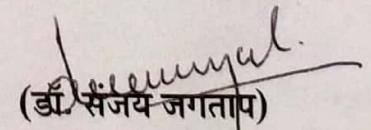 (डॉ. संजय जगताप)